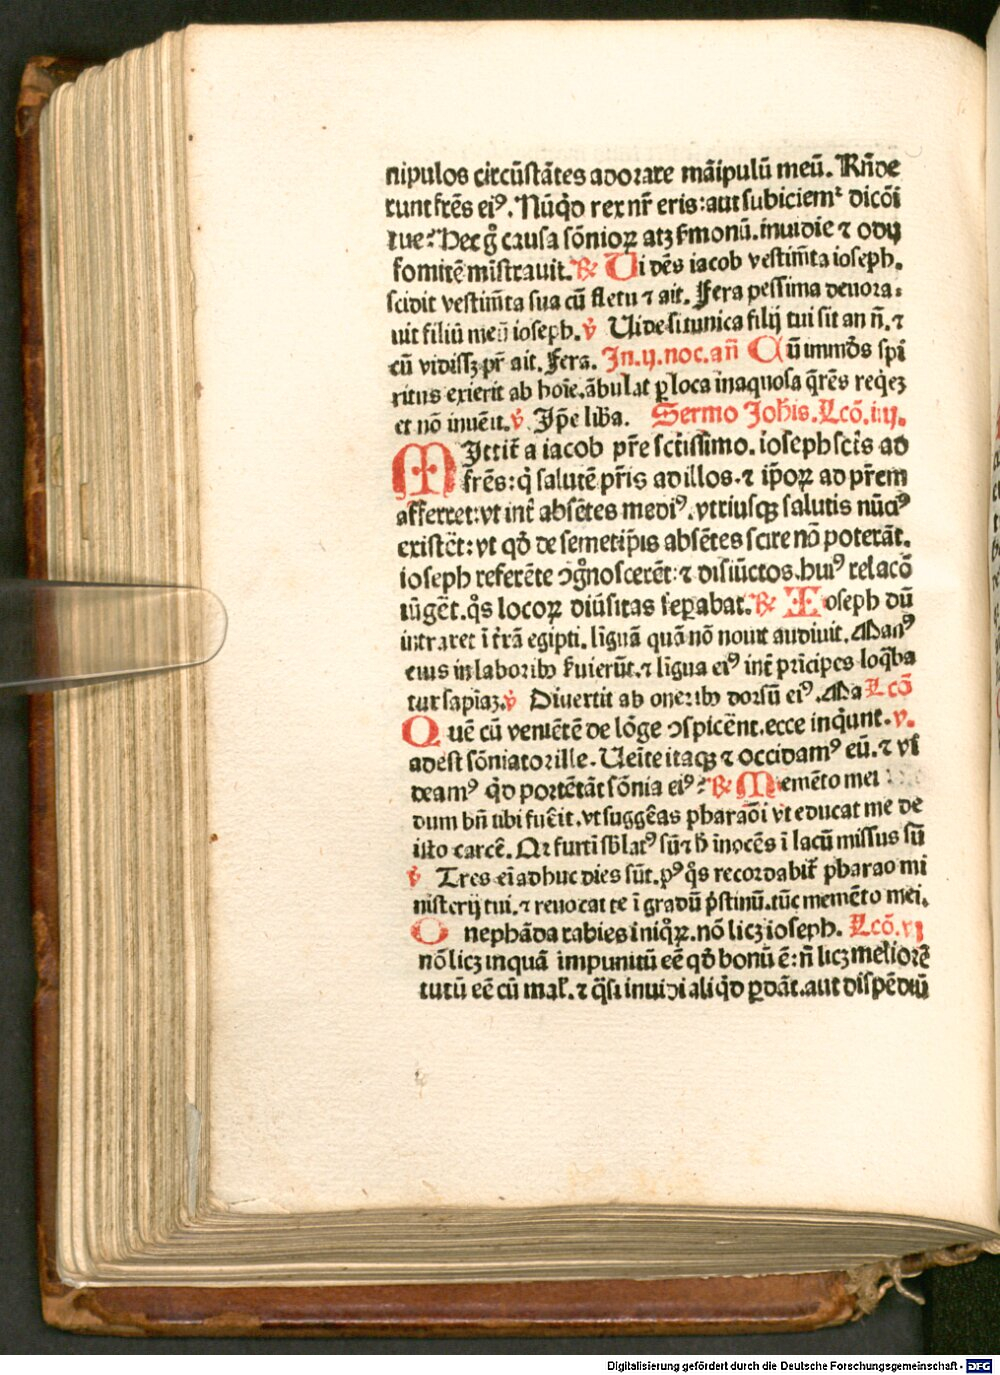 nipulos circūstātes adorare māipulū meū. Rn̄de
runt frēs ei⁹. Nūqd̄ rex nr̄ eris: aut subiciemᷣ dicōi
tue? Hec g̊ causa sōnioꝝ atꝫ ẜmonū. inuidie ⁊ odij
fomitē mīstrauit. ℟ Ui dēs iacob vestim̄ta ioseph.
scidit vestim̄ta sua cū fletu ⁊ ait. Fera pessima deuora-
uit filiū meū ioseph. ℣ Uide si tunica filij tui sit an n̄. ⁊
cū vidissꝫ pr̄ ait. Fera. In .ij. noc. an̄ Cū immōds spi
ritus exierit ab hoīe. ābulat ꝑ loca inaquosa q̄rēs reqeꝫ
et nō inuēit. ℣ Ip̄e liba. Sermo Joh̄is. Lcō. iiij.
Mittit̄ a iacob pr̄e sct̄issimo. ioseph sct̄s ad
frēs: q̇ salutē pr̄is ad illos. ⁊ ip̄oꝝ ad pr̄em
afferret: vt int̄ absētes medi⁹. vtriusqꝫ salutis nūci⁹
existēt: vt qd̄ de semetip̄is absētes scire nō poterāt.
ioseph referēte ꝯg̊noscerēt: ⁊ disiūctos. hui⁹ relacō
iūgēt. q̊s locoꝝ diūsitas seꝑabat. ℟ Ioseph dū
intraret ī t̄rā egipti. līguā quā nō nouit audiuit. Man⁹
eius in laboribꝰ ẜuierūt. ⁊ līgua ei⁹ int̄ prīcipes loq̄ba
tur sapīaꝫ. ℣ Diuertit ab oneribꝰ dorsū ei⁹. Ma Lcō
Quē cū veniētē de lōge ꝯspicēnt. ecce inq̇unt. v.
adest sōniator ille. Ueīte itaqꝫ ⁊ occidam⁹ eū. ⁊ vi
deam⁹ qd̄ portētāt sōnia ei⁹? ℟ Memēto mei
dum bn̄ tibi fuēit. vt suggēas pharaōi vt educat me de
isto carcē. Qꝛ furtī sb̄lat⁹ sū ⁊ h̄ inocēs ī lacū missus sū
℣ Tres eī adhuc dies sūt. p⁹ q̊s recordabit̄ pharao mi
nisterij tui. ⁊ reuocat te ī gradū p̄stinū. tūc memēto mei.
O nephāda rabies iniq̊ꝝ. nō licꝫ ioseph. Lcō. vj
nō licꝫ inquā impunitū eē qd̄ bonū ē: n̄ licꝫ meliorē
tutū eē cū mal̄. ⁊ q̄si inuidi aliqd̄ ꝑdāt. aut dispēdiū
Digitalisierung gefördert durch die Deutsche Forschungsgemeinschaft - DFG